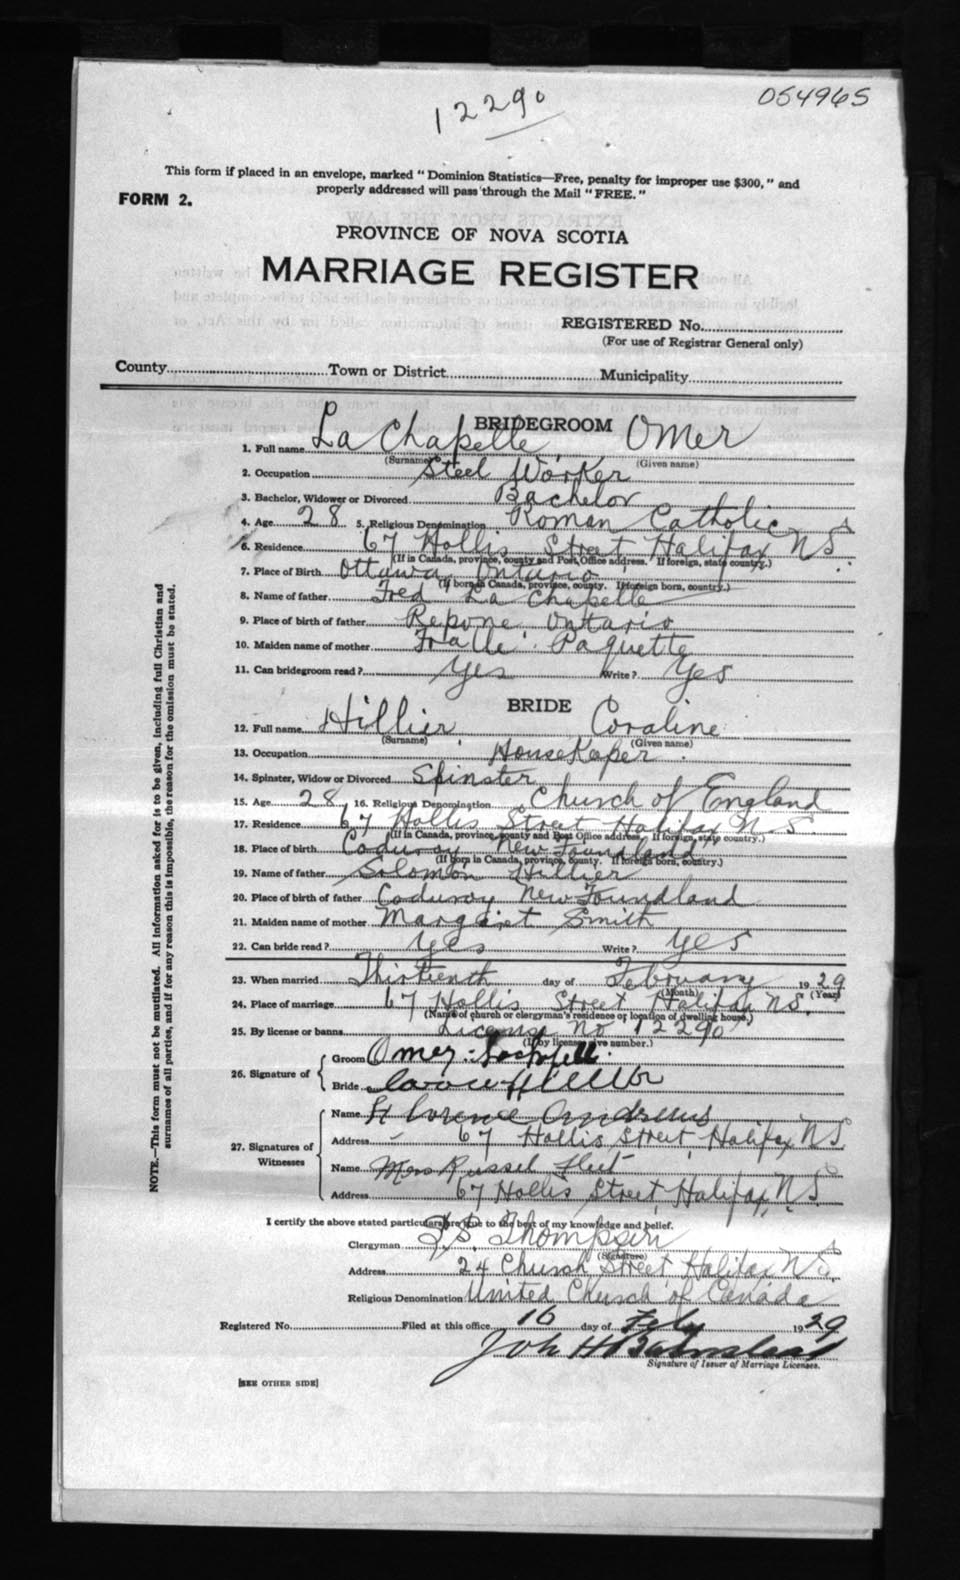 12290
054965
This form if placed in an envelope, marked "Dominion Statistics—Free, penalty for improper use $300," and
properly addressed will pass through the Mail "FREE."
FORM 2.
PROVINCE OF NOVA SCOTIA
MARRIAGE REGISTER
REGISTERED No.
(For use of Registrar General only)
County Town or District Municipality
BRIDEGROOM
1. Full name La Chapelle Omer
(Surname) (Given name)
2. Occupation Steel Worker
3. Bachelor, Widower or Divorced Bachelor
4. Age 28 5. Religious Denomination Roman Catholic
6. Residence 67 Hollis Street Halifax N.S.
(If in Canada, province, county and Post Office address. If foreign, state country.)
7. Place of Birth Ottawa, Ontario
(If born in Canada, province, county. If foreign born, country.)
8. Name of father Fred La Chapelle
9. Place of birth of father Repone Ontario
10. Maiden name of mother Paquette
11. Can bridegroom read? Yes Write? Yes
BRIDE
12. Full name Hillier Coraline
(Surname) (Given name)
13. Occupation HouseKeeper.
14. Spinster, Widow or Divorced Spinster
15. Age 28 16. Religious Denomination Church of England
17. Residence 67 Hollis Street Halifax N.S.
(If in Canada, province, county and Post Office address, If foreign, state country.)
18. Place of birth Coduroy New Foundland
(If born in Canada, province, county. If foreign born, country.)
19. Name of father Solomon Hillier
20. Place of birth of father Coduroy New Foundland
21. Maiden name of mother Margaret Smith
22. Can bride read? Yes Write? Yes
23. When married Thirteenth day of February 1929
(Month) (Year)
24. Place of marriage 67 Hollis Street Halifax N.S.
(Name of church or clergyman's residence or location of dwelling house.)
25. By license or banns License No 12290
(If by license give number.)
26. Signature of
Groom Omer
Bride Hillier
27. Signatures of Witnesses
Name Florence Andrews
Address 67 Hollis Street, Halifax N.S.
Name Mrs Russel Fleet
Address 67 Hollis Street, Halifax, N.S.
I certify the above stated particulars are true to the best of my knowledge and belief.
Clergyman Thompson
(Signature)
Address 24 Church Street, Halifax N.S.
Religious Denomination United Church of Canada
Registered No. Filed at this office 16 day of Feby 1929
Signature of Issuer of Marriage Licenses.
[SEE OTHER SIDE]
NOTE.—This form must not be mutilated. All information asked for is to be given, including full Christian and
surnames of all parties, and if for any reason this is impossible, the reason for the omission must be stated.